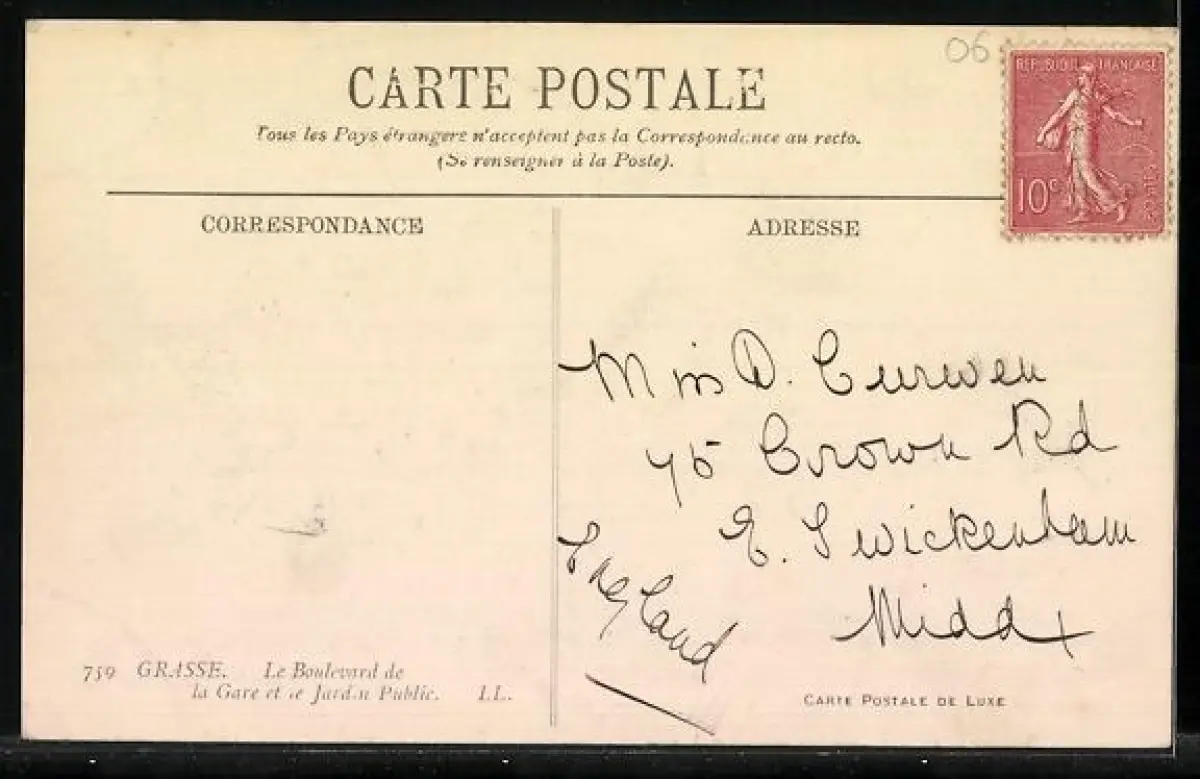 06
REPUBLIQUE FRANÇAISE
10c
POSTES
CARTE POSTALE
Tous les Pays étrangers n'acceptent pas la Correspondance au recto.
(Se renseigner à la Poste).
CORRESPONDANCE
ADRESSE
Miss D. Curwen
75 Crown Rd
E. Twickenham
Middx
England
759 GRASSE. Le Boulevard de
la Gare et le Jardin Public. LL.
CARTE POSTALE DE LUXE